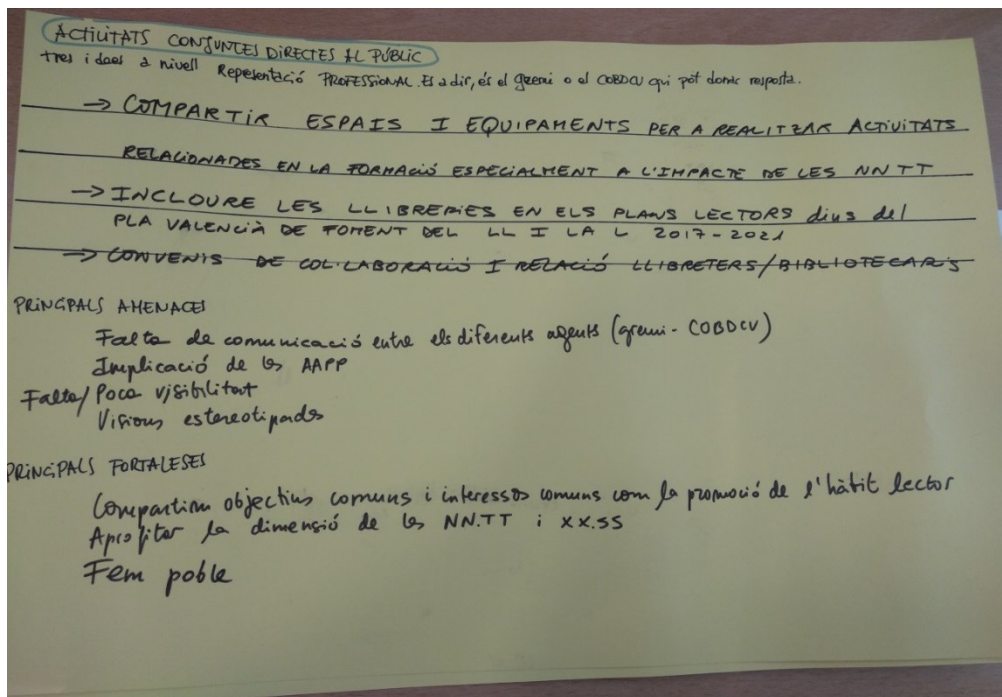 ACTIVITATS CONJUNTES DIRECTES AL PÚBLIC
tres idees a nivell Representació PROFESSIONAL. Es a dir, és el gremi o el COBDCV qui pot donar resposta.
→ COMPARTIR ESPAIS I EQUIPAMENTS PER A REALITZAR ACTIVITATS
RELACIONADES EN LA FORMACIÓ ESPECIALMENT A L'IMPACTE DE LES NN TT
→ INCLOURE LES LLIBRERIES EN ELS PLANS LECTORS dins del
PLA VALENCIÀ DE FOMENT DEL LL I LA L 2017-2021
→ CONVENIS DE COL·LABORACIÓ I RELACIÓ LLIBRETERS/BIBLIOTECARIS
PRINCIPALS AMENACES
Falta de comunicació entre els diferents agents (gremi - COBDCV)
Implicació de les AAPP
Falta/Poca visibilitat
Visions estereotipades
PRINCIPALS FORTALESES
Compartim objectius comuns i interessos comuns com la promoció de l'hàbit lector
Aprofitar la dimensió de les NN.TT i XX.SS
Fem poble